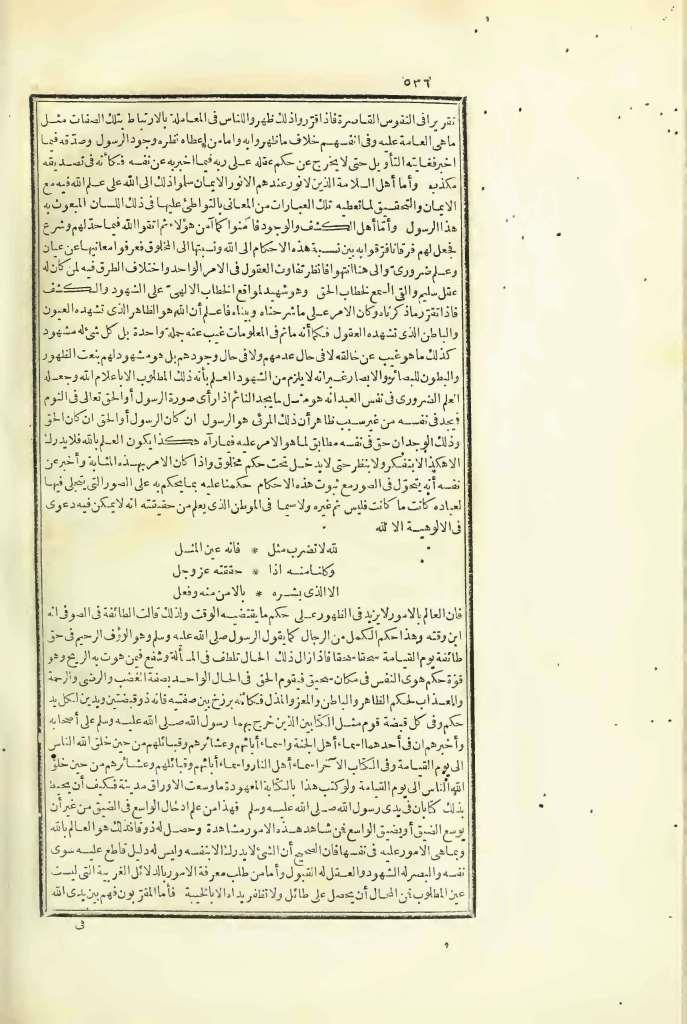 ٥٣٦
تقريرا فى النفوس القاصرة فاذا قرّروا ذلك ظهروا للناس فى المعاملة بالارتباط بتلك الصفات مثل
ما هى العامة عليه وفى انفسهم خلاف ما ظهروا به واما من اعطاه نظره وجود الرسول وصدّقه فيما
اخبر فغايته التأويل حتى لا يخرج عن حكم عقله على ربه فيما اخبر به عن نفسه فكأنه فى تصديقه
مكذب وأما أهل السلامة الذين لا نور عندهم الا نور الايمان سلموا ذلك الى الله على علم الله فيه مع
الايمان والتحقيق لما تعطيه تلك العبارات من المعانى بالتواطئ عليها فى ذلك اللسان المبعوث به
هذا الرسول وأمّا أهل الكشف والوجود فآمنوا كما آمن هؤلاء ثم اتقوا الله فيما حدّ لهم وشرع
فجعل لهم فرقانا فرّقوا به بين نسبة هذه الاحكام الى الله ونسبتها الى المخلوق فعرفوا معانيها عن عيان
وعلم ضرورىّ والى هنا انتهوا فانظر تفاوت العقول فى الامر الواحد واختلاف الطرق فيه لمن كان له
عقل سليم وألقى السمع لخطاب الحق وهو شهيد لمواقع الخطاب الالهىّ على الشهود والكشف
فاذا تقرّر ما ذكرناه وكان الامر على ما شرحناه وبيناه فاعلم أن الله هو الظاهر الذى تشهده العيون
والباطن الذى تشهده العقول فكما أنه ما ثم فى المعلومات غيب عنه جملة واحدة بل كل شئ له مشهود
كذلك ما هو غيب عن خالقه لا فى حال عدمهم ولا فى حال وجودهم بل هو مشهود لهم بنعت الظهور
والبطون للبصائر والابصار غير انه لا يلزم من الشهود العلم بأنه ذلك المطلوب الا باعلام الله وجعله
العلم الضرورى فى نفس العبد انه هو مثل ما يجد النائم اذا رأى صورة الرسول أو الحق تعالى فى النوم
فيجد فى نفسه من غير سبب ظاهر أن ذلك المرئى هو الرسول ان كان الرسول أو الحق ان كان الحق
وذلك الوجدان حق فى نفسه مطابق لما هو الامر عليه فيما رآه هكذا يكون العلم بالله فلا يدرك
الا هكذا لا بتفكر ولا بنظر حتى لا يدخل تحت حكم مخلوق واذا كان الامر بهذه المثابة وأخبر عن
نفسه أنه يتحوّل فى الصور مع ثبوت هذه الاحكام حكمنا عليه بما يحكم به على الصور التى يتجلى فيها
لعباده كانت ما كانت فليس ثم غيره ولا سيما فى الموطن الذى يعلم من حقيقته انه لا يمكن فيه دعوى
فى الالوهية الا لله
لله لا تضرب مثل * فانه عين المثل
وكلنا منه اذا * حققته عز وجل
الا الذى بشره * بالامن منه وفعل
فان العالم بالامور لا يزيد فى الظهور على حكم ما يقتضيه الوقت ولذلك قالت الطائفة فى الصوفى انه
ابن وقته وهذا حكم الكمل من الرجال كما يقول الرسول صلى الله عليه وسلم وهو الرؤف الرحيم فى حق
طائفة يوم القيامة سحقا سحقا فاذا زال ذلك الحال تلطف فى المسألة وشفع فيمن هوت به الريح وهو
قوّة حكم هوى النفس فى مكان سحيق فيقوم الحق فى الحال الواحد بصفة الغضب والرضى والرحمة
والعذاب لحكم الظاهر والباطن والمعز والمذل فكأنه برزخ بين صفتيه فانه ذو قبضتين ويدين لكل يد
حكم وفى كل قبضة قوم مثل الكتابين الذين خرج بهما رسول الله صلى الله عليه وسلم على أصحابه
وأخبرهم ان فى أحدهما اسماء أهل الجنة واسماء آبائهم وعشائرهم وقبائلهم من حين خلق الله الناس
الى يوم القيامة وفى الكتاب الآخر اسماء أهل النار واسماء آبائهم وقبائلهم وعشائرهم من حين خلق
الله الناس الى يوم القيامة ولو كتب هذا بالكتابة المعهودة ما وسعت الاوراق مدينة فكيف أن يحيط
بذلك كتابان فى يدى رسول الله صلى الله عليه وسلم فهذا من علم ادخال الواسع فى الضيق من غير أن
يوسع الضيق أو يضيق الواسع فمن شاهد هذه الامور مشاهدة وحصل له ذوقا فذلك هو العالم بالله
وبما هى الامور عليه فى نفسها فان الصحيح أن الشئ لا يدرك الا بنفسه وليس له دليل قاطع عليه سوى
نفسه والبصر له الشهود والعقل له القبول وأما من طلب معرفة الامور بالدلائل الغريبة التى ليست
عين المطلوب فمن المحال أن يحصل على طائل ولا تظفر يداه الا بالخيبة فأما المقرّبون فهم بين يدى الله
فى